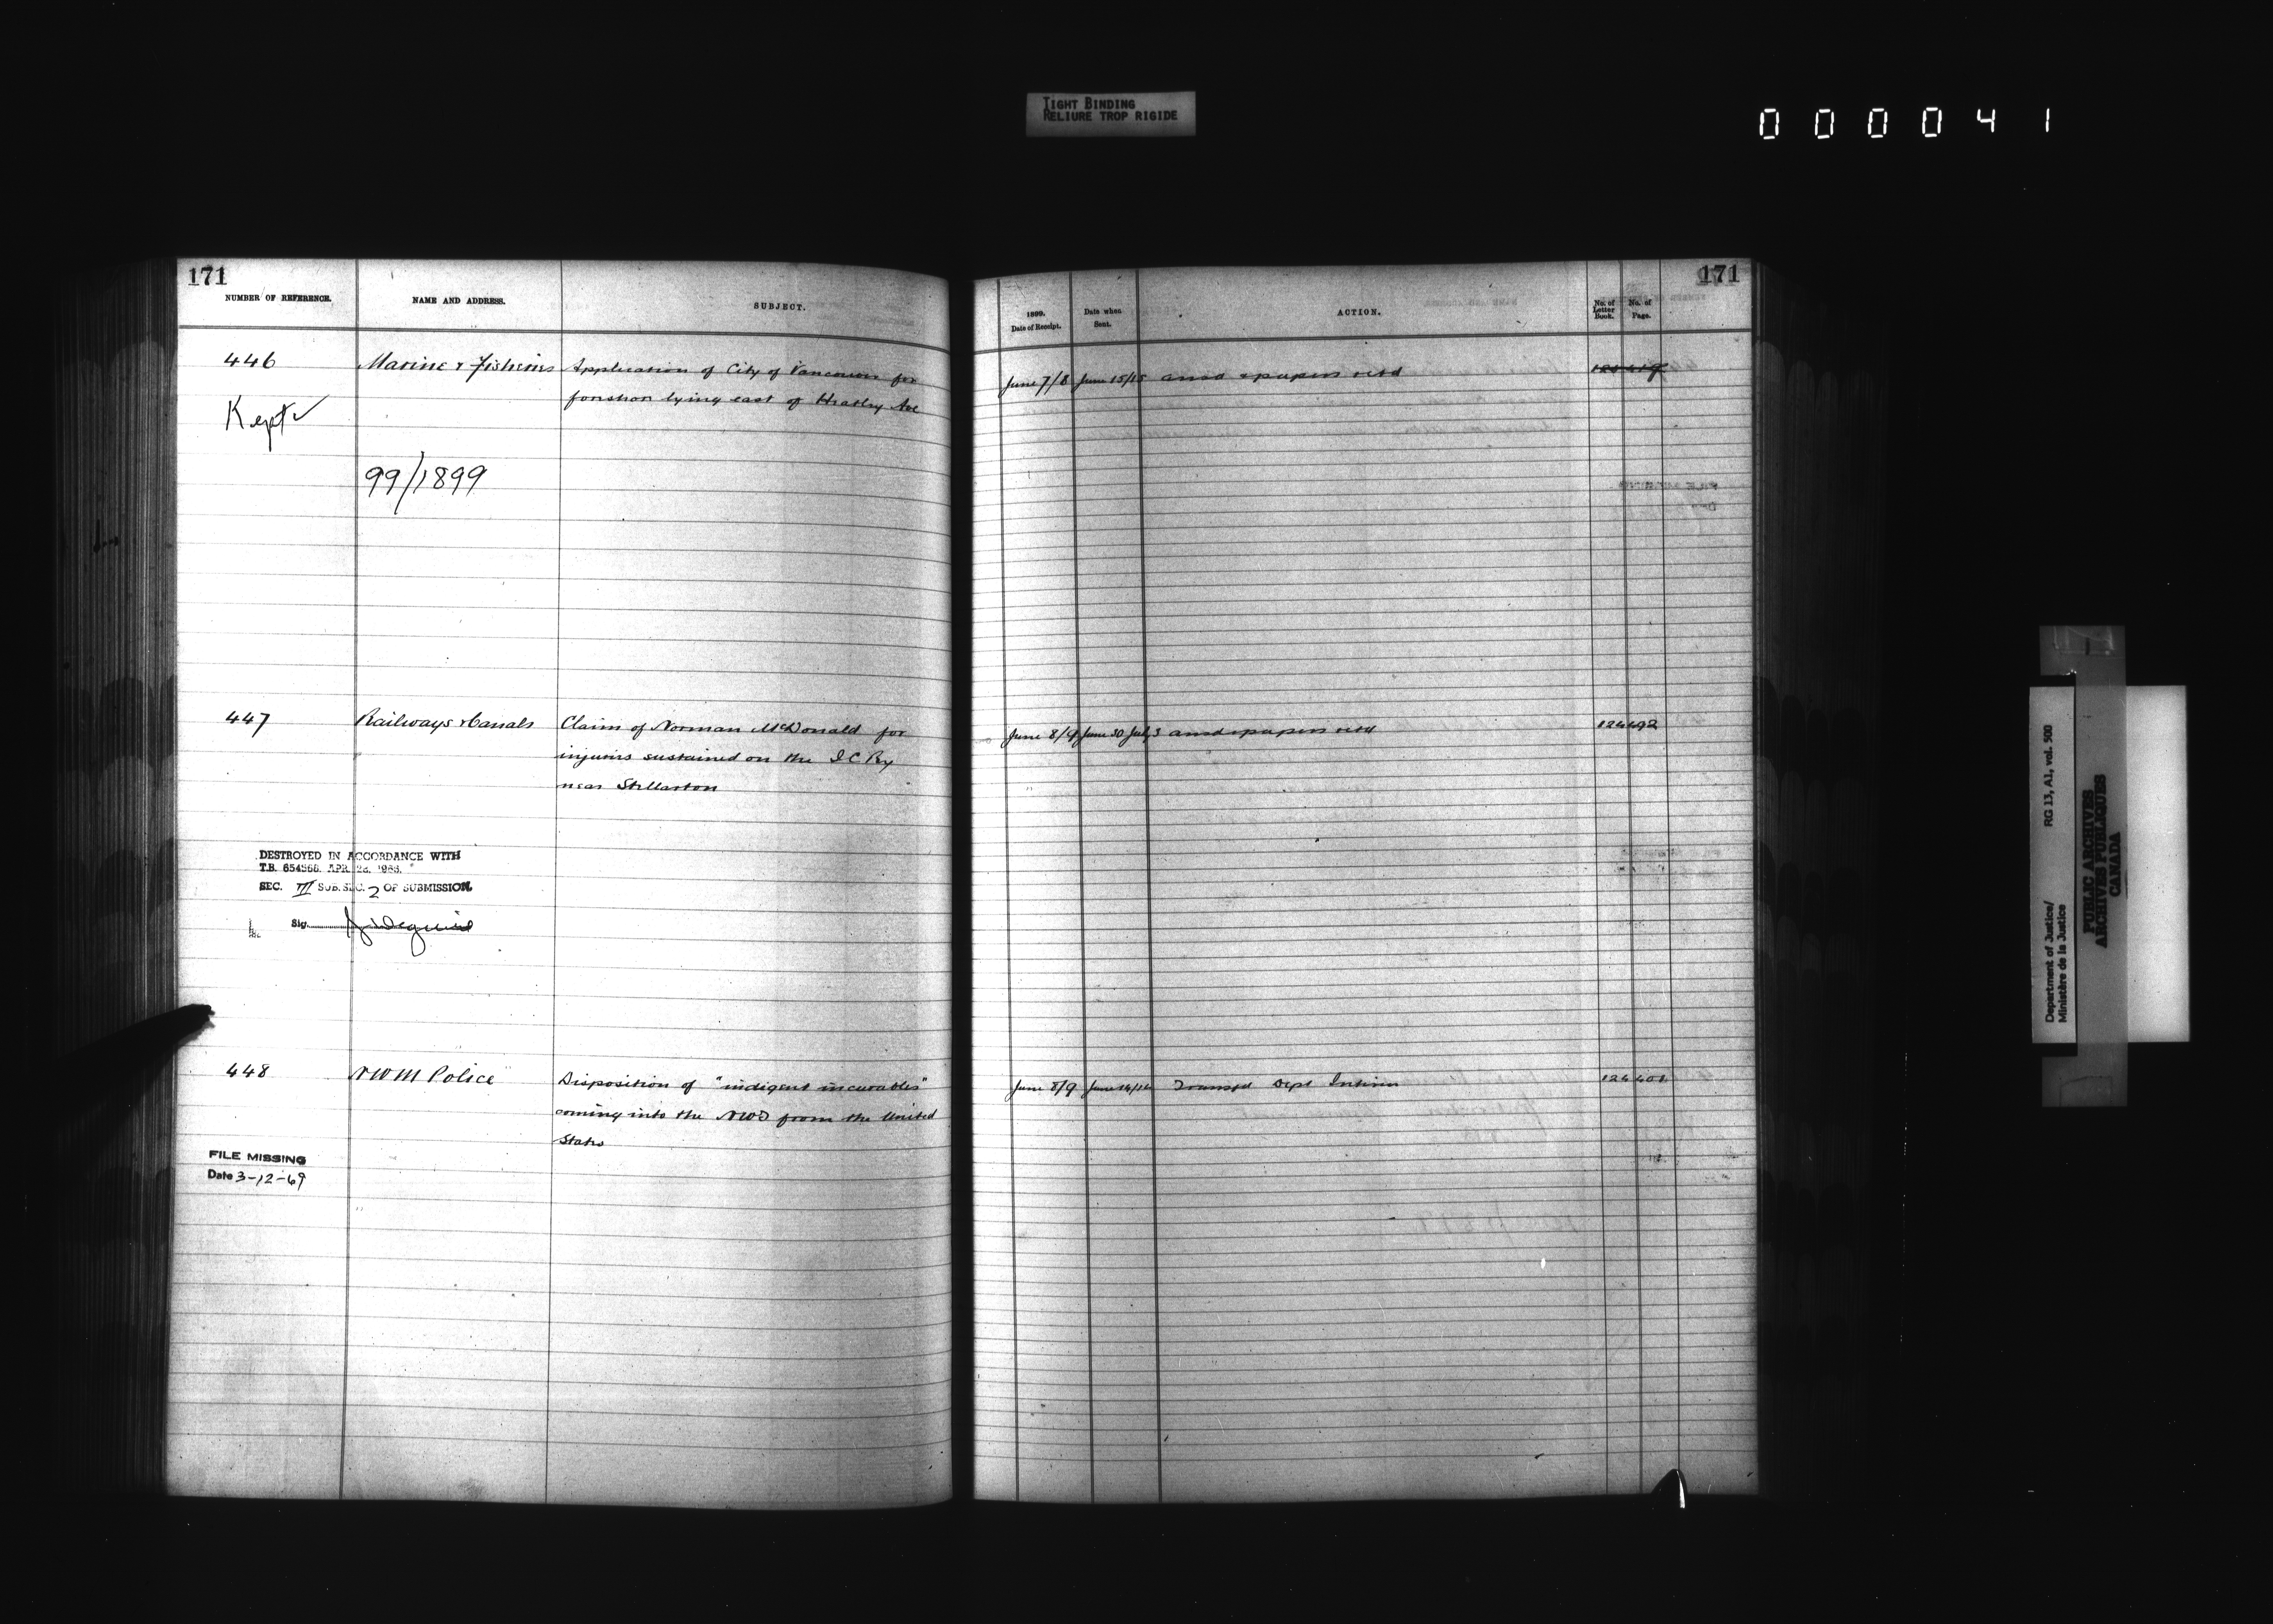 TIGHT BINDING
RELIURE TROP RIGIDE
000041
171
NUMBER OF REFERENCE.
NAME AND ADDRESS.
SUBJECT.
446
Marine & Fisheries
Application of City of Vancouver for
foreshore lying east of Heatley Ave
Kept
99/1899
447
Railways & Canals
Claim of Norman McDonald for
injuries sustained on the I C Ry
near Stellarton
DESTROYED IN ACCORDANCE WITH
T.B. APR.
SEC. III SUB.SEC. 2 OF SUBMISSION
Sig.
448
NWM Police
Disposition of "indigent incurables"
coming into the NWT from the United
States
FILE MISSING
Date 3-12-69
171
1899.
Date of Receipt.
Date when
Sent.
ACTION.
No. of
Letter
Book.
No. of
Page.
June 7/8 June 15/15 ansd & papers retd
June 8/9 June 30 July 3 ansd & papers retd 124 492
June 8/9 June 14/14 Transfd Dept Interior 124 401
Department of Justice/
Ministère de la Justice
RG 13, A1, vol. 500
PUBLIC ARCHIVES
ARCHIVES PUBLIQUES
CANADA